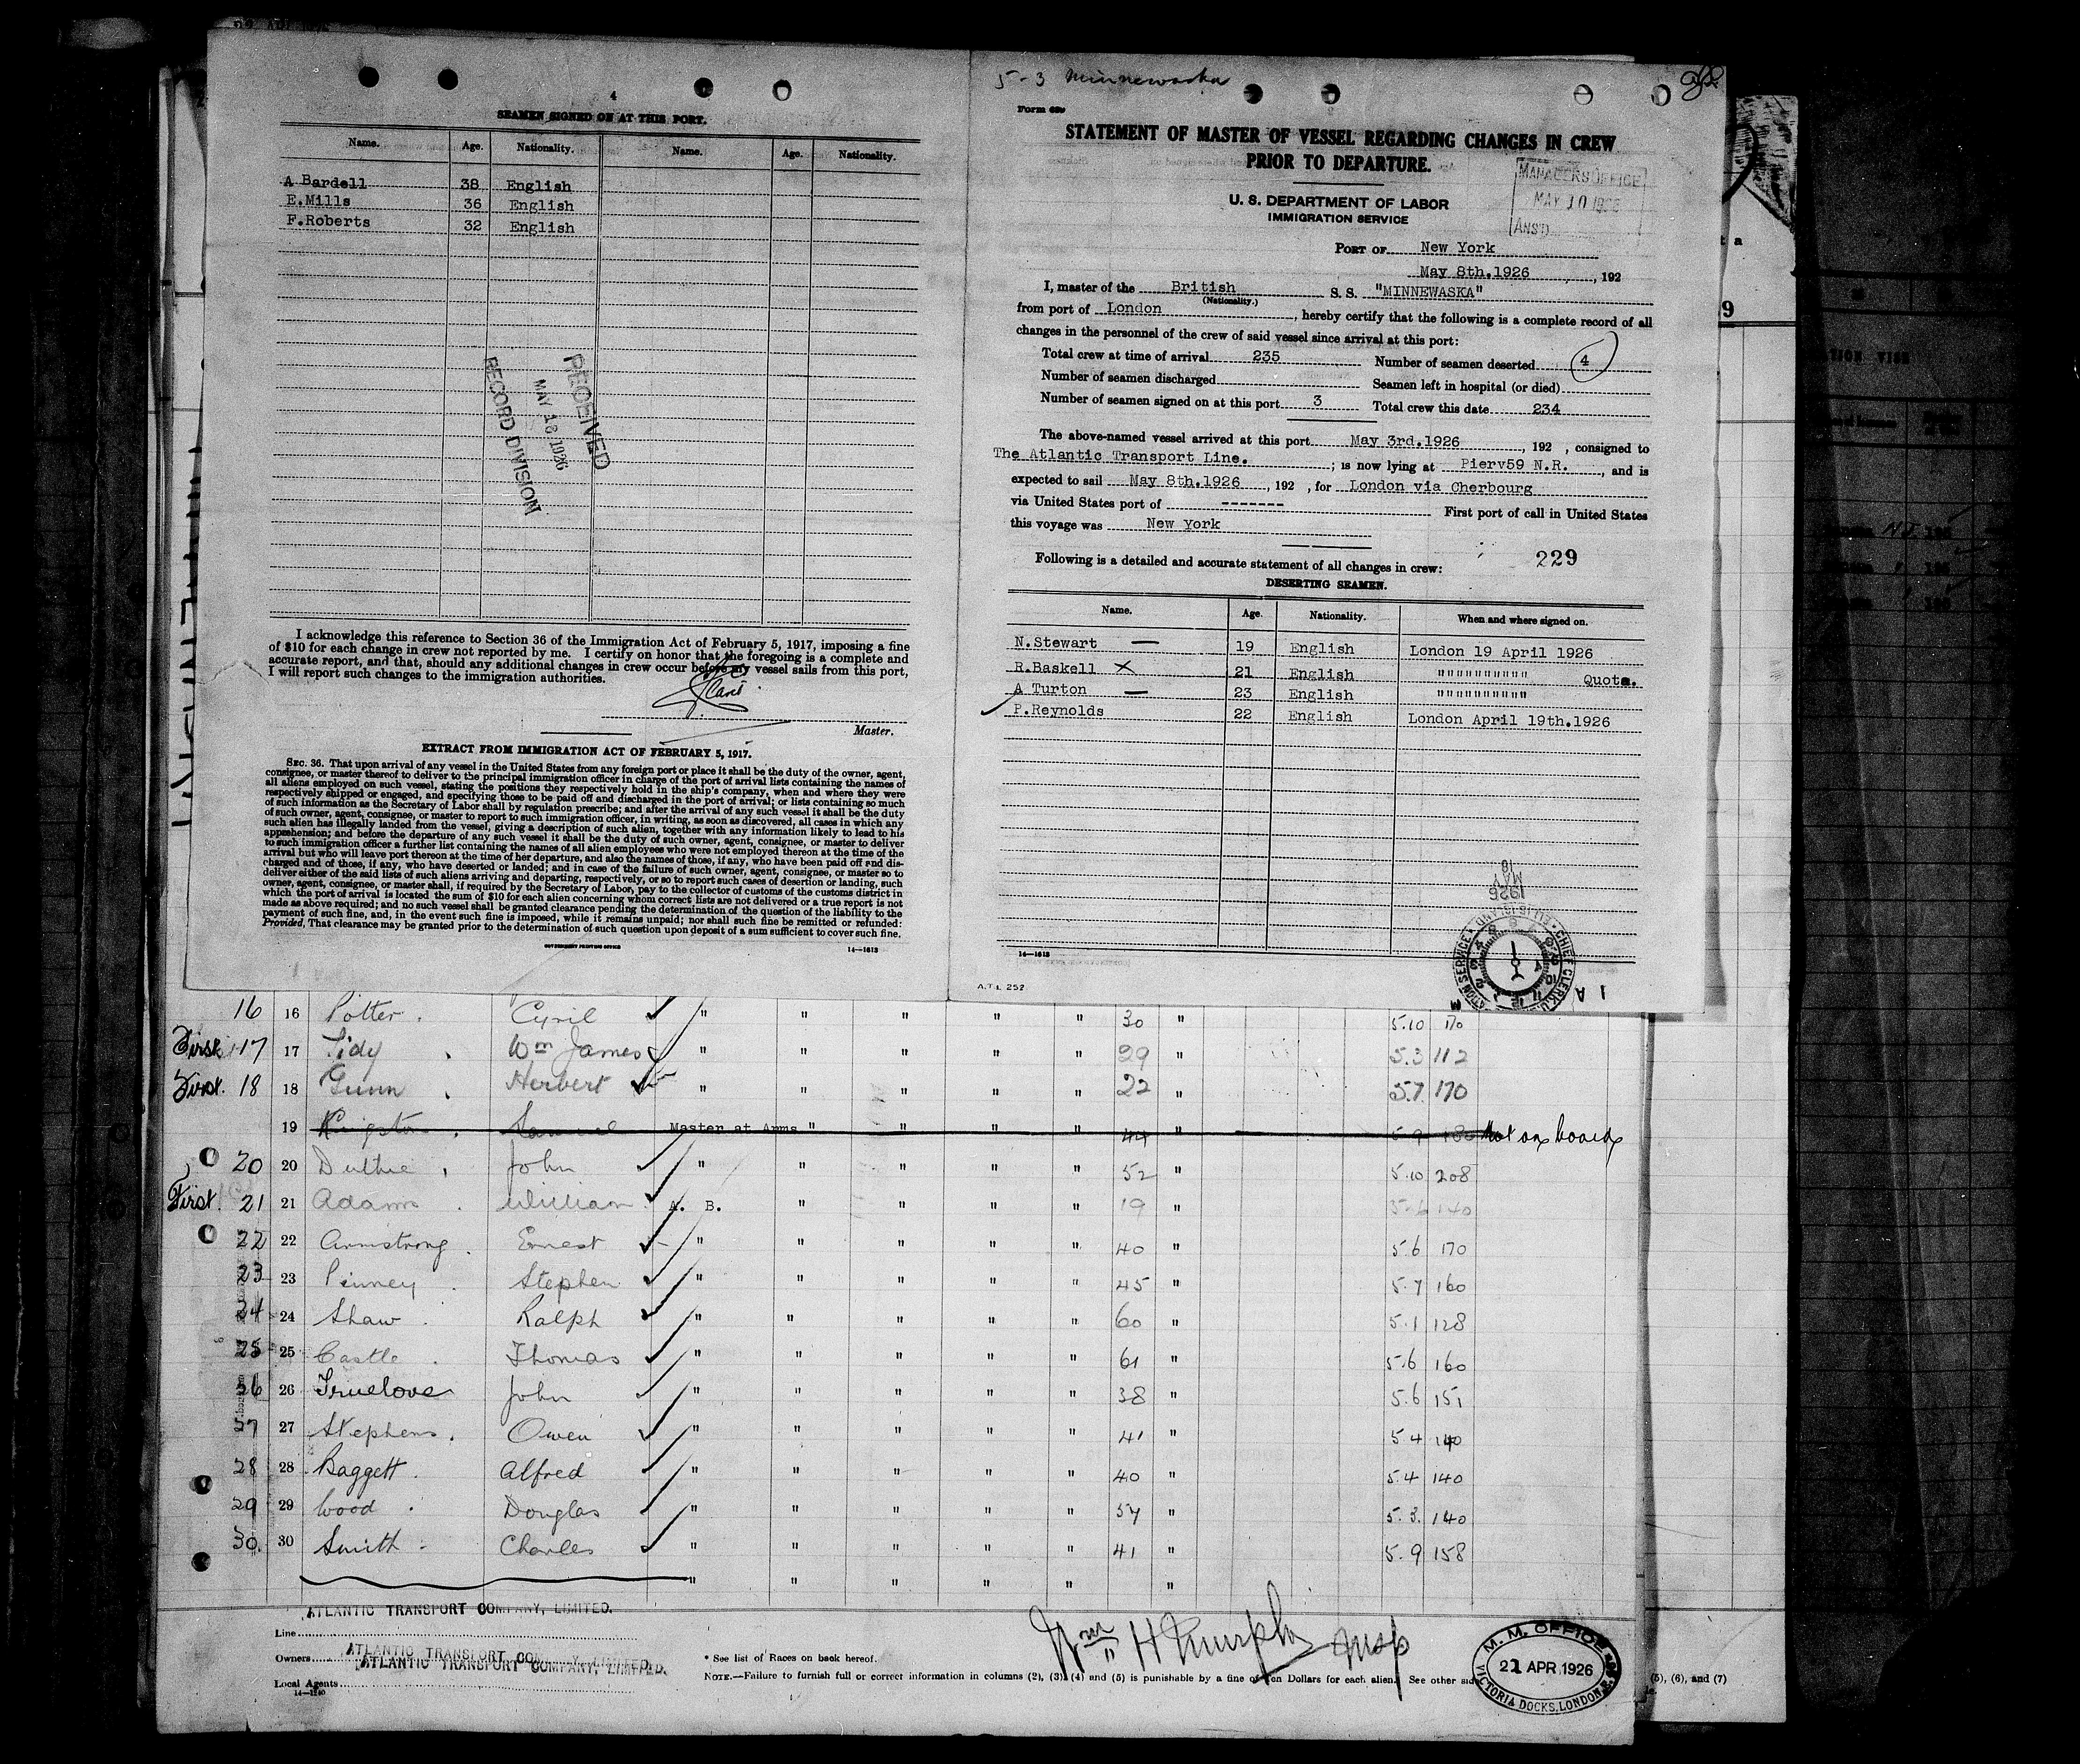 4
SEAMEN SIGNED ON AT THIS PORT.
Name. Age. Nationality. Name. Age. Nationality.
A Bardell 38 English
E.Mills 36 English
F.Roberts 32 English
RECEIVED
MAY 18 1926
RECORD DIVISION
I acknowledge this reference to Section 36 of the Immigration Act of February 5, 1917, imposing a fine
of $10 for each change in crew not reported by me. I certify on honor that the foregoing is a complete and
accurate report, and that, should any additional changes in crew occur before my vessel sails from this port,
I will report such changes to the immigration authorities.
Master.
EXTRACT FROM IMMIGRATION ACT OF FEBRUARY 5, 1917.
SEC. 36. That upon arrival of any vessel in the United States from any foreign port or place it shall be the duty of the owner, agent,
consignee, or master thereof to deliver to the principal immigration officer in charge of the port of arrival lists containing the names of
all aliens employed on such vessel, stating the positions they respectively hold in the ship's company, when and where they were
respectively shipped or engaged, and specifying those to be paid off and discharged in the port of arrival; or lists containing so much
of such information as the Secretary of Labor shall by regulation prescribe; and after the arrival of any such vessel it shall be the duty
of such owner, agent, consignee, or master to report to such immigration officer, in writing, as soon as discovered, all cases in which any
such alien has illegally landed from the vessel, giving a description of such alien, together with any information likely to lead to his
apprehension; and before the departure of any such vessel it shall be the duty of such owner, agent, consignee, or master to deliver
to such immigration officer a further list containing the names of all alien employees who were not employed thereon at the time of the
arrival but who will leave port thereon at the time of her departure, and also the names of those, if any, who have been paid off and dis-
charged and of those, if any, who have deserted or landed; and in case of the failure of such owner, agent, consignee, or master so to
deliver either of the said lists of such aliens arriving and departing, respectively, or so to report such cases of desertion or landing, such
owner, agent, consignee, or master shall, if required by the Secretary of Labor, pay to the collector of customs of the customs district in
which the port of arrival is located the sum of $10 for each alien concerning whom correct lists are not delivered or a true report is not
made as above required; and no such vessel shall be granted clearance pending the determination of the question of the liability to the
payment of such fine, and, in the event such fine is imposed, while it remains unpaid; nor shall such fine be remitted or refunded:
Provided, That clearance may be granted prior to the determination of such question upon deposit of a sum sufficient to cover such fine.
GOVERNMENT PRINTING OFFICE
14—1613
5-3 Minnewaska
Form 689
STATEMENT OF MASTER OF VESSEL REGARDING CHANGES IN CREW
PRIOR TO DEPARTURE.
U. S. DEPARTMENT OF LABOR
IMMIGRATION SERVICE
MANAGERS OFFICE
MAY 10 1926
ANS'D
PORT OF New York
May 8th.1926 , 192
I, master of the British S. S. "MINNEWASKA"
(Nationality.)
from port of London , hereby certify that the following is a complete record of all
changes in the personnel of the crew of said vessel since arrival at this port:
Total crew at time of arrival 235 Number of seamen deserted 4
Number of seamen discharged Seamen left in hospital (or died)
Number of seamen signed on at this port 3 Total crew this date 234
The above-named vessel arrived at this port May 3rd.1926 , 192 , consigned to
The Atlantic Transport Line. ; is now lying at Pierv59 N.R. , and is
expected to sail May 8th.1926 , 192 , for London via Cherbourg
via United States port of ------- First port of call in United States
this voyage was New York
Following is a detailed and accurate statement of all changes in crew: 229
DESERTING SEAMEN.
Name. Age. Nationality. When and where signed on.
N.Stewart — 19 English London 19 April 1926
R.Baskell X 21 English """""""""" Quota.
A Turton — 23 English """"""""""
P.Reynolds 22 English London April 19th.1926
MAY 18
1926
14—1613
A.T.L. 252
16 16 Potter. Cyril " " " " " 30 " 5.10 170
First 17 17 Tidy . Wm James " " " " " 29 " 5.3 112
First. 18 18 Gunn . Herbert " " " " " 22 " 5.7 170
19 Kingston . Samuel Master at Arms " " " " 44 " 5.9 180 Not on board
20 20 Duthie . John " " " " " 52 " 5.10 208
First. 21 21 Adams . William A. B. " " " " 19 " 5.6 140
22 22 Armstrong . Ernest " " " " " 40 " 5.6 170
23 23 Pinney . Stephen " " " " " 45 " 5.7 160
24 24 Shaw . Ralph " " " " " 60 " 5.1 128
25 25 Castle . Thomas " " " " " 61 " 5.6 160
26 26 Truelove John " " " " " 38 " 5.6 151
27 27 Stephens. Owen " " " " " 41 " 5.4 140
28 28 Baggett . Alfred " " " " " 40 " 5.4 140
29 29 Wood . Douglas " " " " " 57 " 5.3. 140
30. 30 Smith . Charles " " " " " 41 " 5.9 158
" " " " " "
ATLANTIC TRANSPORT COMPANY, LIMITED.
Line
Owners ATLANTIC TRANSPORT COMPANY, LIMITED.
ATLANTIC TRANSPORT COMPANY, LIMITED.
Local Agents
14—1240
* See list of Races on back hereof.
NOTE.—Failure to furnish full or correct information in columns (2), (3), (4) and (5) is punishable by a fine of Ten Dollars for each alien. See other sid
(5), (6), and (7)
Wm H Murphy Insp
M. M. OFFICE
22 APR.1926
VICTORIA DOCKS, LONDON